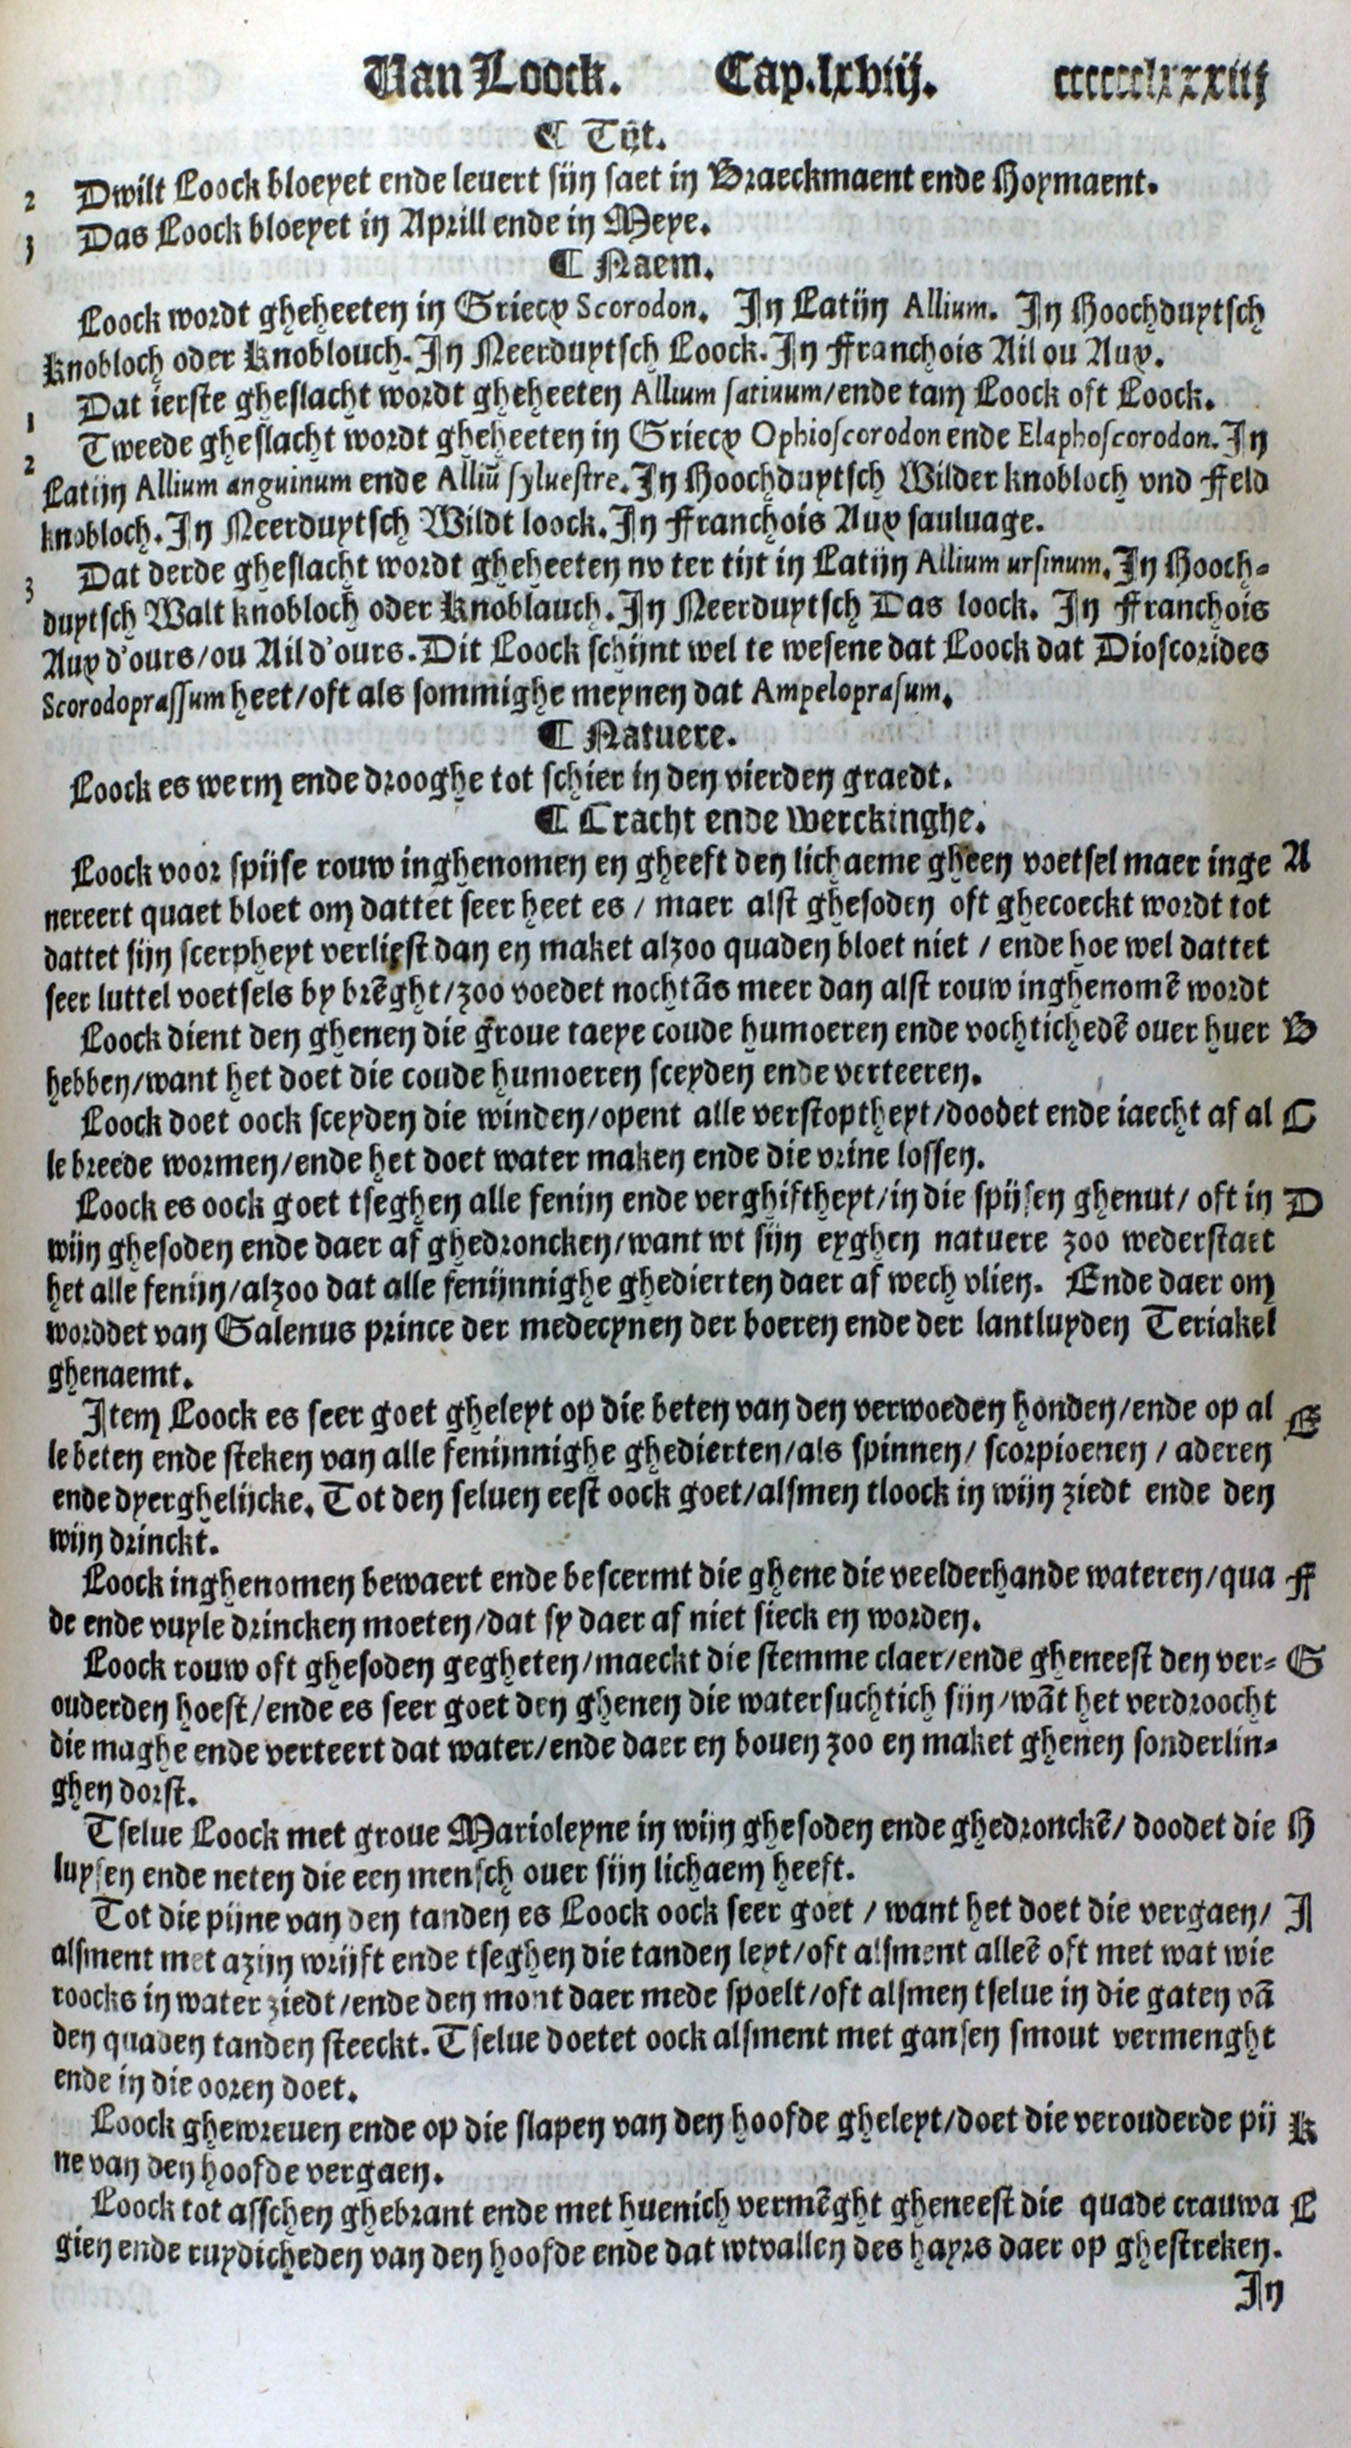 Van Loock. Cap.lxviij. ccccccclxxxiij
¶ Tijt.
2 Dwilt Loock bloeyet ende levert sijn saet in Braeckmaent ende Hoymaent.
3 Das Loock bloeyet in Aprill ende in Meye.
¶ Naem.
Loock wordt gheheeten in Griecx Scorodon. In Latijn Allium. In Hoochduytsch
Knobloch oder Knoblouch. In Neerduytsch Loock. In Franchois Ail ou Aux.
1 Dat ierste gheslacht wordt gheheeten Allium sativum/ende tam Loock oft Loock.
2 Tweede gheslacht wordt gheheeten in Griecx Ophioscorodon ende Elaphoscorodon. In
Latijn Allium anguinum ende Alliū sylvestre. In Hoochduytsch Wilder knobloch vnd Feld
knobloch. In Neerduytsch Wildt loock. In Franchois Aux sauluage.
3 Dat derde gheslacht wordt gheheeten nv ter tijt in Latijn Allium ursinum. In Hooch-
duytsch Walt knobloch oder Knoblauch. In Neerduytsch Das loock. In Franchois
Aux d'ours/ou Ail d'ours. Dit Loock schijnt wel te wesene dat Loock dat Dioscorides
Scorodoprassum heet/oft als sommighe meynen dat Ampeloprasum.
¶ Natuere.
Loock es werm ende drooghe tot schier in den vierden graedt.
¶ Cracht ende werckinghe.
Loock voor spijse rouw inghenomen en gheeft den lichaeme gheen voetsel maer inge A
nereert quaet bloet om dattet seer heet es / maer alst ghesoden oft ghecoeckt wordt tot
dattet sijn scerpheyt verliest dan en maket alzoo quaden bloet niet / ende hoe wel dattet
seer luttel voetsels by brēght/zoo voedet nochtās meer dan alst rouw inghenomē wordt
Loock dient den ghenen die groue taeye coude humoeren ende vochtichedē ouer huer B
hebben/want het doet die coude humoeren sceyden ende verteeren.
Loock doet oock sceyden die winden/opent alle verstoptheyt/doodet ende iaecht af al C
le breede wormen/ende het doet water maken ende die vrine lossen.
Loock es oock goet tseghen alle fenijn ende verghiftheyt/in die spijsen ghenut/ oft in D
wijn ghesoden ende daer af ghedroncken/want wt sijn eyghen natuere zoo wederstaet
het alle fenijn/alzoo dat alle fenijnnighe ghedierten daer af wech vlien. Ende daer om
worddet van Galenus prince der medecynen der boeren ende der lantluyden Teriakel
ghenaemt.
Item Loock es seer goet gheleyt op die beten van den verwoeden honden/ende op al E
le beten ende steken van alle fenijnnighe ghedierten/als spinnen/ scorpioenen / aderen
ende dyerghelijcke. Tot den seluen eest oock goet/alsmen tloock in wijn ziedt ende den
wijn drinckt.
Loock inghenomen bewaert ende bescermt die ghene die veelderhande wateren/qua F
de ende vuyle drincken moeten/dat sy daer af niet sieck en worden.
Loock rouw oft ghesoden gegheten/maeckt die stemme claer/ende gheneest den ver- G
ouderden hoest/ende es seer goet den ghenen die watersuchtich sijn/wāt het verdroocht
die maghe ende verteert dat water/ende daer en bouen zoo en maket ghenen sonderlin-
ghen dorst.
Tselue Loock met groue Marioleyne in wijn ghesoden ende ghedronckē/ doodet die H
luysen ende neten die een mensch ouer sijn lichaem heeft.
Tot die pijne van den tanden es Loock oock seer goet / want het doet die vergaen/ I
alsment met azijn wrijft ende tseghen die tanden leyt/oft alsment alleē oft met wat wie
roocks in water ziedt/ende den mont daer mede spoelt/oft alsmen tselue in die gaten vā
den quaden tanden steeckt. Tselue doetet oock alsment met gansen smout vermenght
ende in die ooren doet.
Loock ghewreuen ende op die slapen van den hoofde gheleyt/doet die verouderde pij K
ne van den hoofde vergaen.
Loock tot asschen ghebrant ende met huenich vermēght gheneest die quade crauwa L
gien ende ruydicheden van den hoofde ende dat wtvallen des hayrs daer op ghestreken.
In